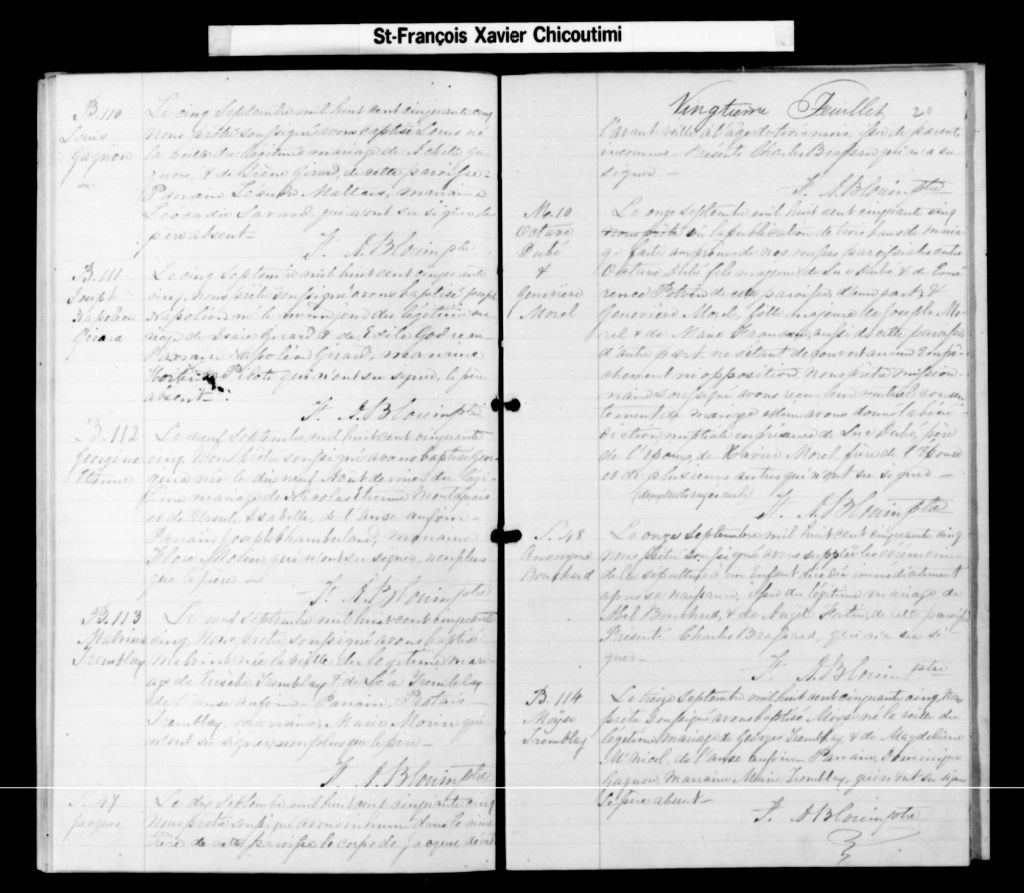 St-François Xavier Chicoutimi
B. 110
Louis
Gagnon
Le cinq Septembre mil huit cent cinquante cinq
Nous prêtre soussigné avons baptisé Louis né
la veille du légitime mariage de Achille Ga-
gnon, & de Girard, de cette paroisse.
Parrain marraine
Savard, qui n'ont su signer le
père absent—
F. A. Blouin ptre
B. 111
Joseph
Napoléon
Girard
Le cinq Septembre mil huit cent cinquante
cinq, nous prêtre soussigné avons baptisé Joseph
Napoléon né le du légitime ma-
riage de Isaïe Girard & de Edile
Parrain Napoléon Girard, marraine
Pilote qui n'ont su signer, le père
absent—
F. A. Blouin ptre
B. 112
Georgine
Etienne
Le neuf Septembre mil huit cent cinquante
cinq Nous prêtre soussigné avons baptisé Geor-
gine née le dix neuf Aout dernier du légi-
time mariage de Nicolas Etienne
et de Ursule Isabelle, de l'anse au foin.
Parrain Joseph Chamberland, marraine
Flore Molin, qui n'ont su signer non plus
que le père—
F. A. Blouin ptre
B. 113
Malvina
Tremblay
Le neuf Septembre mil huit cent cinquante
cinq, Nous prêtre soussigné avons baptisé
Malvina née la veille du légitime maria-
ge de Eusèbe Tremblay & de Tremblay
de l'anse au foin— Parrain, Protais
Tremblay, marraine, Marie Morin qui
n'ont su signer non plus que le père—
F. A. Blouin ptre
S. 47
Jacques
Le dix Septembre mil huit cent cinquante cinq
Nous prêtre soussigné avons inhumé dans le cime-
tière de cette paroisse le corps de Jacques décédé
Vingtième Feuillet 20
l'avant veille à l'âge de trois mois, né de parents
inconnus— Présent Charles Brassard qui n'a su
signer—
F. A. Blouin ptre
M. 10
Octave
Dubé
&
Geneviève
Morel
Le onze septembre mil huit cent cinquante cinq
vu la publication de trois bans de maria-
ge faite au prône de nos messes paroissiales entre
Octave Dubé fils majeur de Luc Dubé & de
Potvin de cette paroisse, d'une part; &
Geneviève Morel, fille majeure de Joseph Mo-
rel & de Marie aussi de cette paroisse
d'autre part, ne s'étant découvert aucun empê-
chement ni opposition, nous prêtre mission-
naire soussigné avons reçu leur mutuel consen-
tement de mariage et leur avons donné la béné-
diction nuptiale en présence de Luc Dubé, père
de l'Epoux, de Xavier Morel, frère de l'Epouse
et de plusieurs autres qui n'ont su signer—
(deux mots rayés nuls)
F. A. Blouin ptre
S. 48
Anonyme
Bouchard
Le onze Septembre mil huit cent cinquante cinq
nous prêtre soussigné avons suppléé les cérémonies
de la sépulture à un Enfant décédé immédiatement
après sa naissance, issu du légitime mariage de
Abel Bouchard, & de Angèle Fortin, de cette paroisse
Présent Charles Brassard, qui n'a su si-
gner—
F. A. Blouin ptre
B. 114
Moyse
Tremblay
Le treize Septembre mil huit cent cinquante cinq Nous
prêtre soussigné avons baptisé Moyse né la veille du
légitime mariage de Georges Tremblay & de Magdeleine
McNicol, de l'anse au foin. Parrain, Dominique
Gagnon, Marraine Marie Tremblay, qui n'ont su signer
le père absent—
F. A. Blouin ptre